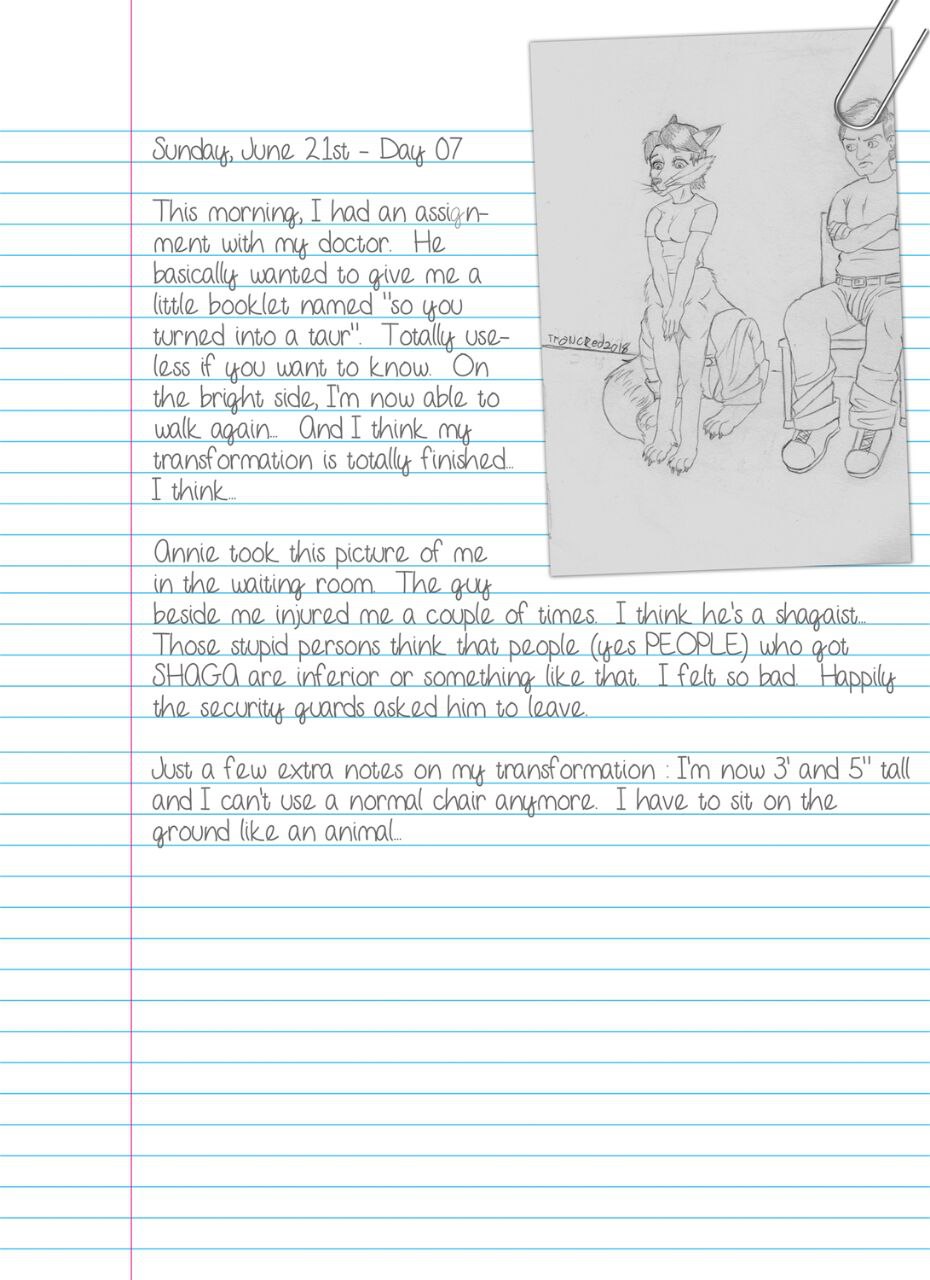 Sunday, June 21st - Day 07
This morning, I had an assign-
ment with my doctor. He
basically wanted to give me a
little booklet named "so you
turned into a taur". Totally use-
less if you want to know. On
the bright side, I'm now able to
walk again... And I think my
transformation is totally finished...
I think...
Annie took this picture of me
in the waiting room. The guy
beside me injured me a couple of times. I think he's a shagaist...
Those stupid persons think that people (yes PEOPLE) who got
SHAGA are inferior or something like that. I felt so bad. Happily
the security guards asked him to leave.
Just a few extra notes on my transformation : I'm now 3' and 5" tall
and I can't use a normal chair anymore. I have to sit on the
ground like an animal...